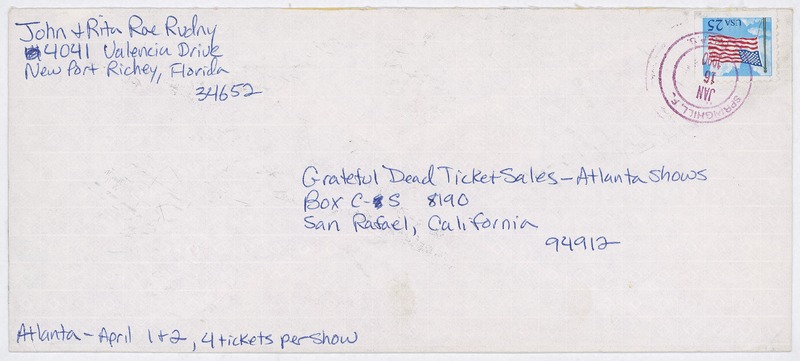 John + Rita Rae Rudny
4041 Valencia Drive
New Port Richey, Florida
34652
25 USA
SPRINGHILL, FL
JAN
16
1990
Grateful Dead Ticket Sales - Atlanta Shows
Box C-S 8190
San Rafael, California
94912
Atlanta - April 1+2, 4 tickets per show